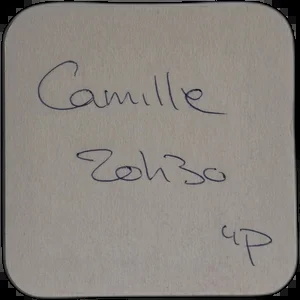 Camille
20h30
4p